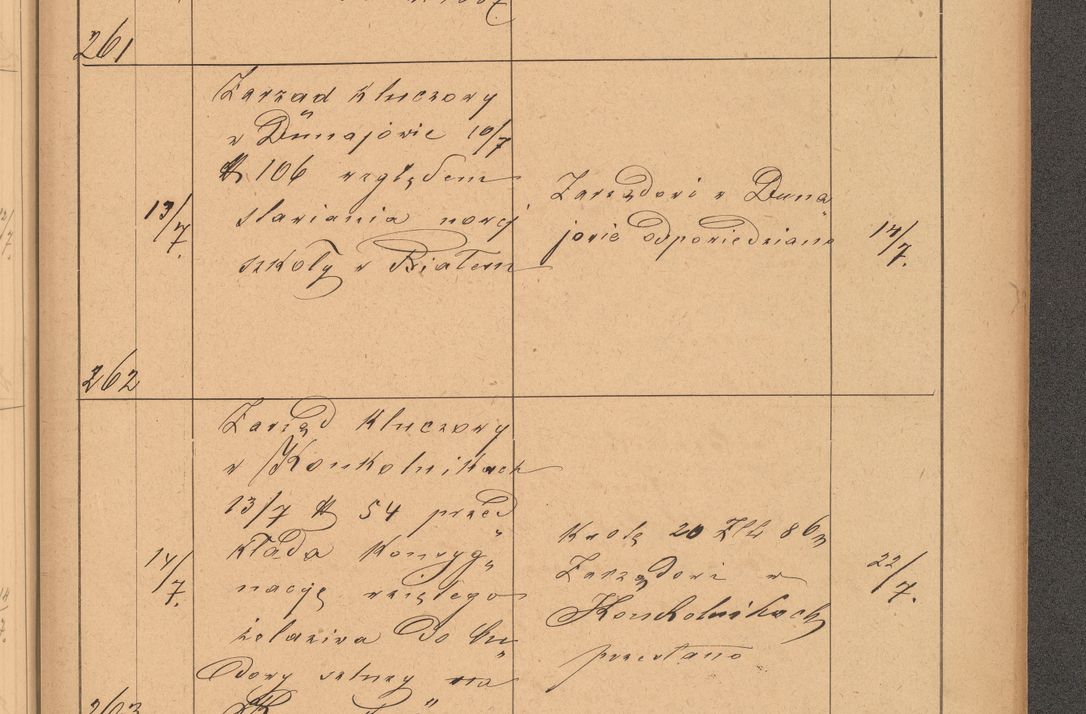 261
Zarząd kluczowy
w Dunajowie 10/7
N 106 względem
stawiania nowej
szkoły w Białem
13/7.
Zarządowi w Duna„
jowie odpowiedziano
14/7.
262
Zarząd kluczowy
w Konkolnikach
13/7 N 54 przed„
kłada konsyg„
nacyę wziętego
żelaziwa do bu„
dowy setnej na
14/7.
Kwotę 20 Złr 86
Zarządowi w
Konkolnikach
przesłano
22/7.
263